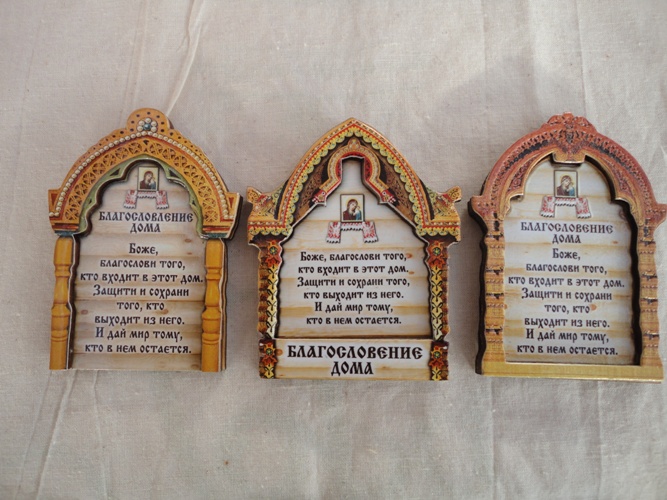 БЛАГОСЛОВЛЕНИЕ
ДОМА
Боже,
благослови того,
кто входит в этот дом.
Защити и сохрани
того, кто
выходит из него.
И дай мир тому,
кто в нем остается.
Боже, благослови того,
кто входит в этот дом.
Защити и сохрани того,
кто выходит из него.
И дай мир тому,
кто в нем остается.
БЛАГОСЛОВЕНИЕ
ДОМА
БЛАГОСЛОВЕНИЕ
ДОМА
Боже,
благослови того,
кто входит в этот дом.
Защити и сохрани
того, кто
выходит из него.
И дай мир тому,
кто в нем остается.